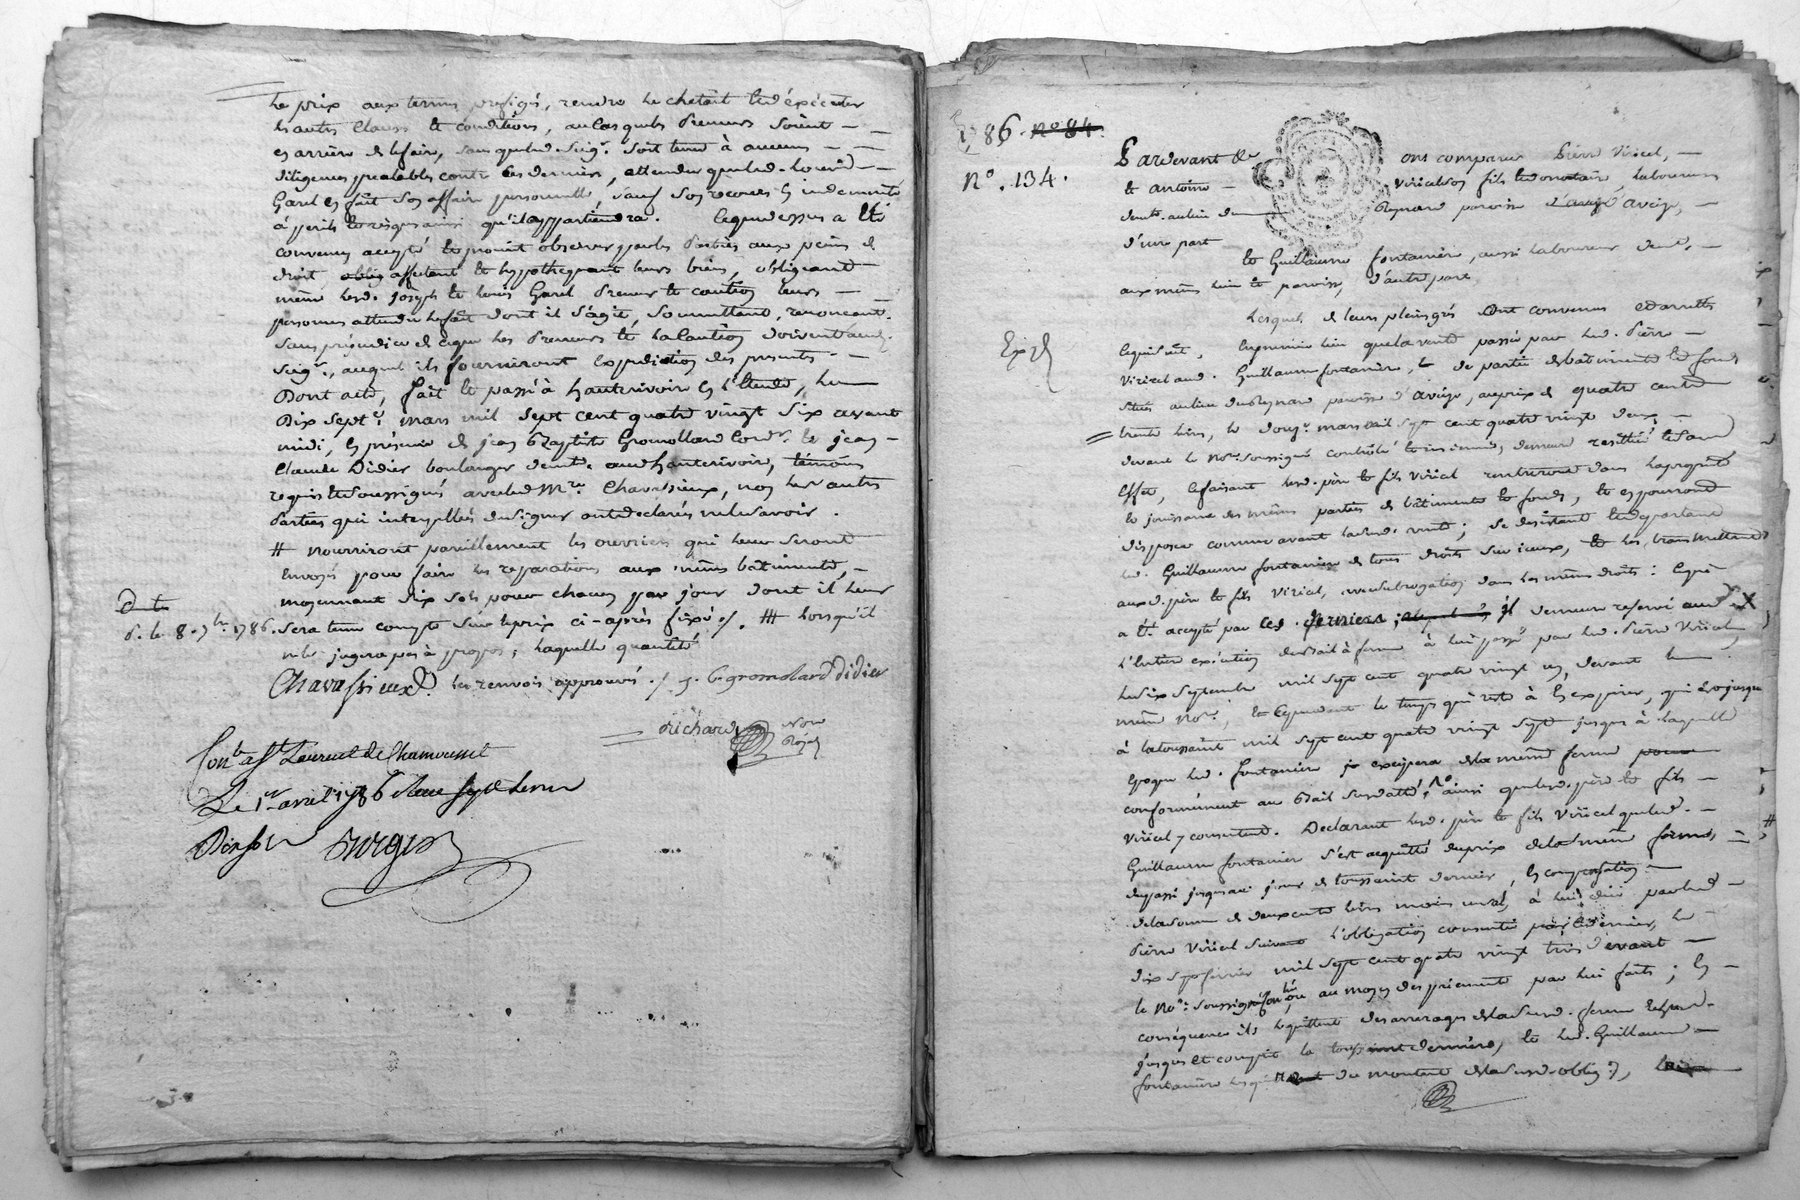 Le prix aux termes prefigés, rendre le cheteil et d'éxécuter
les autres clauses et conditions, au cas que les preneurs soient
en arrière de le faire, sans que led. seigr. soit tenu à aucunes
diligences prealables contre ces derniers, attendu que led. Louis
Garel en fait son affaire personnelle, sauf son recours en indemnité
à perils et risques ainsi qu'il appartiendra. Ce que dessus a été
convenu accepté et promit observer par les parties aux peines de
droit, affectant et hypothequant leurs biens, obligeant
même lesd. joseph et Louis Garel preneur et caution leurs
personnes attendu le fait dont il s'agit, soumettant, renonceant.
sans prejudice de ce que les preneurs et la caution doivent aud.
seigr., auquel ils fourniront expedition des presentes
Dont acte, fait et passé à hauterivoire en l'étude, le
Dix sept mars mil sept cent quatre vingt six avant
midi, en présence de jean Baptiste Gromollard cordr. et jean
Claude Didier boulanger demt. aud. hauterivoire, témoins
requis et soussignés avec led. Me. Chavassieux, non les autres
Parties qui interpellées de signer ont declarés ne le savoir.
# nourriront pareillement les ouvriers qui leur seront
envoyés pour faire les reparations aux mêmes bâtiments,
moyennant six sols pour chacun par jour dont il leur
sera tenu compte sur le prix ci-après fixé ./. ## lorsqu'il
d. le 8. 7bre 1786.
ne le jugera pas à propos, laquelle quantité
Chavassieux les renvois approuvés ./. j. b gromolard didier
Richard Nore Royal
Con. à St Laurent de Chamousset
Le 1er avril 1786
1786. no 84.
No. 134.
Exp
Pardevant le ons comparu Pierre Viricel,
et antoine viricel son fils laboureurs
demt. au lieu du Reynard paroisse d'aveize,
d'une part
et Guillaume fontanière, aussi laboureur demt.
aux mêmes lieu et paroisse, d'autre part
Lesquels de leurs pleins grés sont convenus et arrettés
ce qui suit, en premier lieu que la vente passée par led. Pierre
Viricel aud. Guillaume fontanière, de partie de bâtiments et fonds
situés au lieu du Reynard paroisse d'aveize, au prix de quatre cents
trente livres, le douze mars mil sept cent quatre vingt deux
devant le Nore. soussigné contrôlé et insinué, demeure resiliée et sans
effet, ce faisant lesd. père et fils viricel rentreront dans la proprieté
et jouissance des mêmes parties de bâtiments et fonds, et en pourront
disposer comme avant lad. vente; se desistant et départant
led. Guillaume fontanière de tous droits sur iceux, et les transmettant
auxd. père et fils Viricel, avec subrogation dans les mêmes droits: ce qui
a été accepté par ces derniers il demeure reservé aud.
l'entière exécution du bail à ferme à lui passé par led. Pierre Viricel,
le six septembre mil sept cent quatre vingt un, devant le
même Nore, et ce pendant le temps qui reste à en expirer, qui est jusque
à la toussaint mil sept cent quatre vingt sept jusques à laquelle
époque led. fontanière jouira de la même ferme
conformément au Bail susdatté, ainsi que lesd. père et fils
Viricel y consentent. Declarant lesd. père et fils Viricel que led.
Guillaume fontanier s'est acquitté du prix de la même ferme,
du passé jusqu'au jour de toussaint dernier, en compensation
de la somme de deux cents livres à lui due par led.
Pierre Viricel suivant l'obligation consentie par ce dernier, le
dix sept fevrier mil sept cent quatre vingt trois devant
le Nore. soussigné, ou au moyen des paiements par lui faits; en
conséquence ils le quittent des arrerages de la susd. ferme
jusques et compris la toussaint dernière, et led. Guillaume
fontanière les quitte du montant de la susd. oblig on,